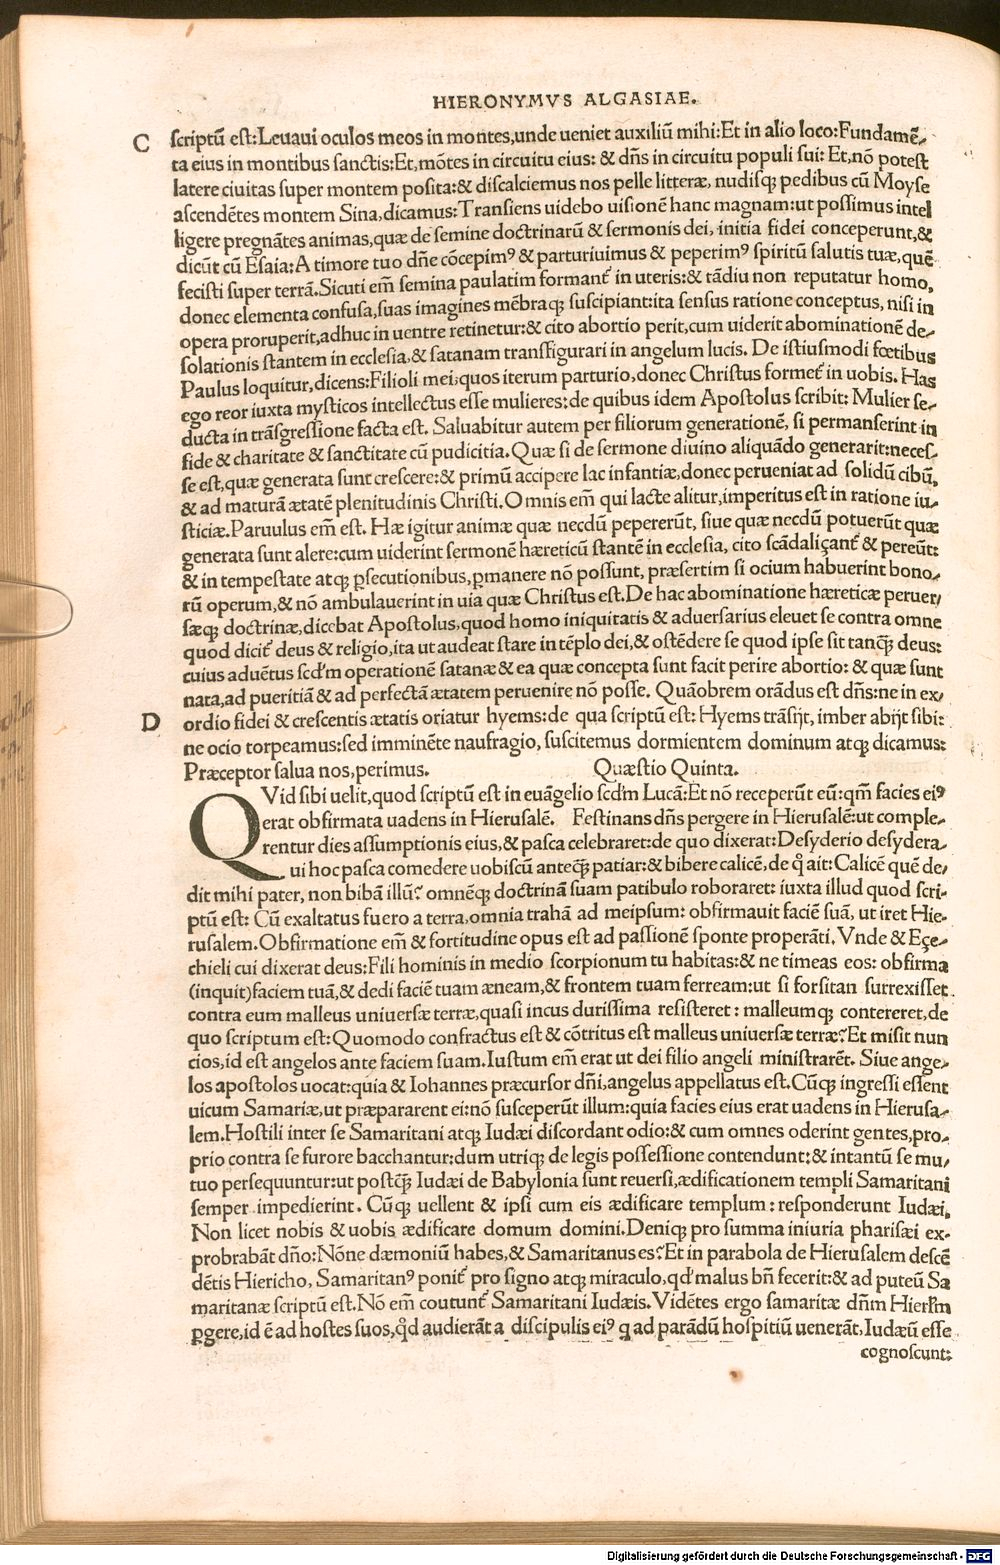 HIERONYMVS ALGASIAE.
C scriptũ est: Leuaui oculos meos in montes, unde ueniet auxiliũ mihi: Et in alio loco: Fundamẽ-
ta eius in montibus sanctis: Et, mõtes in circuitu eius: & dñs in circuitu populi sui: Et, nõ potest
latere ciuitas super montem posita: & discalciemus nos pelle litteræ, nudisqꝫ pedibus cũ Moyse
ascendẽtes montem Sina, dicamus: Transiens uidebo uisionẽ hanc magnam: ut possimus intel
ligere pregnãtes animas, quæ de semine doctrinarũ & sermonis dei, initia fidei conceperunt, &
dicũt cũ Esaia: A timore tuo dñe cõcepimꝰ & parturiuimus & peperimꝰ spiritũ salutis tuæ, quẽ
fecisti super terrã. Sicuti em̃ semina paulatim formant᷑ in uteris: & tãdiu non reputatur homo,
donec elementa confusa, suas imagines mẽbraqꝫ suscipiant: ita sensus ratione conceptus, nisi in
opera proruperit, adhuc in uentre retinetur: & cito abortio perit, cum uiderit abominationẽ de-
solationis stantem in ecclesia, & satanam transfigurari in angelum lucis. De istiusmodi fœtibus
Paulus loquitur, dicens: Filioli mei, quos iterum parturio, donec Christus formet᷑ in uobis. Has
ego reor iuxta mysticos intellectus esse mulieres: de quibus idem Apostolus scribit: Mulier se-
ducta in trãsgressione facta est. Saluabitur autem per filiorum generationẽ, si permanserint in
fide & charitate & sanctitate cũ pudicitia. Quæ si de sermone diuino aliquãdo generarit: neces-
se est, quæ generata sunt crescere: & primũ accipere lac infantiæ, donec perueniat ad solidũ cibũ,
& ad maturã ætatẽ plenitudinis Christi. Omnis em̃ qui lacte alitur, imperitus est in ratione iu-
sticiæ. Paruulus em̃ est. Hæ igitur animæ quæ necdũ pepererũt, siue quæ necdũ potuerũt quæ
generata sunt alere: cum uiderint sermonẽ hæreticũ stantẽ in ecclesia, cito scãdaliçant᷑ & pereũt:
& in tempestate atqꝫ ꝑsecutionibus, ꝑmanere nõ possunt, præsertim si ocium habuerint bono-
rũ operum, & nõ ambulauerint in uia quæ Christus est. De hac abominatione hæreticæ peruer-
sæqꝫ doctrinæ, dicebat Apostolus, quod homo iniquitatis & aduersarius eleuet se contra omne
quod dicit᷑ deus & religio, ita ut audeat stare in tẽplo dei, & ostẽdere se quod ipse sit tanqꝫ̃ deus:
cuius aduẽtus scd'm operationẽ satanæ & ea quæ concepta sunt facit perire abortio: & quæ sunt
nata, ad pueritiã & ad perfectã ætatem peruenire nõ posse. Quãobrem orãdus est dñs: ne in ex-
D ordio fidei & crescentis ætatis oriatur hyems: de qua scriptũ est: Hyems trãsijt, imber abijt sibi:
ne ocio torpeamus: sed imminẽte naufragio, suscitemus dormientem dominum atqꝫ dicamus:
Præceptor salua nos, perimus. Quæstio Quinta.
QVid sibi uelit, quod scriptũ est in euãgelio scd'm Lucã: Et nõ receperũt eũ: qm̃ facies eiꝰ
erat obfirmata uadens in Hierusalẽ. Festinans dñs pergere in Hierusalẽ: ut comple-
rentur dies assumptionis eius, & pasca celebraret: de quo dixerat: Desyderio desydera-
ui hoc pasca comedere uobiscũ anteqꝫ̃ patiar: & bibere calicẽ, de q̊ ait: Calicẽ quẽ de-
dit mihi pater, non bibã illũ? omnẽqꝫ doctrinã suam patibulo roboraret: iuxta illud quod scri-
ptũ est: Cũ exaltatus fuero a terra, omnia trahã ad meipsum: obfirmauit faciẽ suã, ut iret Hie-
rusalem. Obfirmatione em̃ & fortitudine opus est ad passionẽ sponte properãti. Vnde & Eçe-
chieli cui dixerat deus: Fili hominis in medio scorpionum tu habitas: & ne timeas eos: obfirma
(inquit) faciem tuã, & dedi faciẽ tuam æneam, & frontem tuam ferream: ut si forsitan surrexisset
contra eum malleus uniuersæ terræ, quasi incus durissima resisteret: malleumqꝫ contereret, de
quo scriptum est: Quomodo confractus est & cõtritus est malleus uniuersæ terræ? Et misit nun
cios, id est angelos ante faciem suam. Iustum em̃ erat ut dei filio angeli ministrarẽt. Siue ange-
los apostolos uocat: quia & Iohannes præcursor dñi, angelus appellatus est. Cũqꝫ ingressi essent
uicum Samariæ, ut præpararent ei: nõ susceperũt illum: quia facies eius erat uadens in Hierusa-
lem. Hostili inter se Samaritani atqꝫ Iudæi discordant odio: & cum omnes oderint gentes, pro-
prio contra se furore bacchantur: dum utriqꝫ de legis possessione contendunt: & intantũ se mu-
tuo persequuntur: ut postqꝫ̃ Iudæi de Babylonia sunt reuersi, ædificationem templi Samaritani
semper impedierint. Cũqꝫ uellent & ipsi cum eis ædificare templum: responderunt Iudæi,
Non licet nobis & uobis ædificare domum domini. Deniqꝫ pro summa iniuria pharisæi ex-
probrabãt dño: Nõne dæmoniũ habes, & Samaritanus es? Et in parabola de Hierusalem descẽ
dẽtis Hiericho, Samaritanꝰ ponit᷑ pro signo atqꝫ miraculo, qd' malus bñ fecerit: & ad puteũ Sa
maritanæ scriptũ est. Nõ em̃ coutunt᷑ Samaritani Iudæis. Vidẽtes ergo samaritæ dñm Hierl'm
ꝑgere, id ẽ ad hostes suos, q̊d audierãt a discipulis eiꝰ q ad parãdũ hospitiũ uenerãt, Iudæũ esse
cognoscunt:
Digitalisierung gefördert durch die Deutsche Forschungsgemeinschaft - DFG